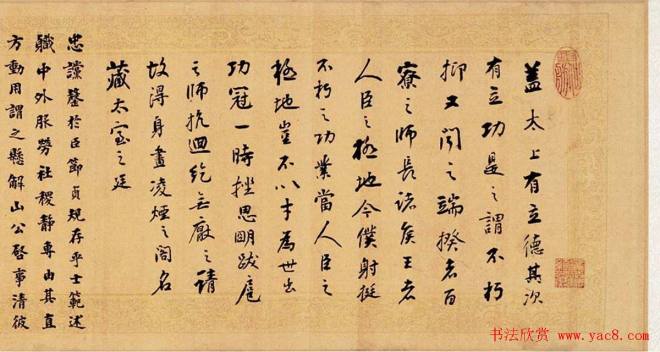 盖太上有立德其次
有立功是之謂不朽
抑又聞之端揆者百
寮之師長諸侯王者
人臣之極地今僕射挺
不朽之功業當人臣之
極地豈不以才為世出
功冠一時挫思明跋扈
之師抗迴紇無厭之請
故得身畫凌煙之閣名
藏太室之廷
忠讜罄於臣節貞規存乎士範述
職中外服勞社稷静專由其直
方動用謂之懸解山公啓事清彼
书法欣赏·www.yac8.com